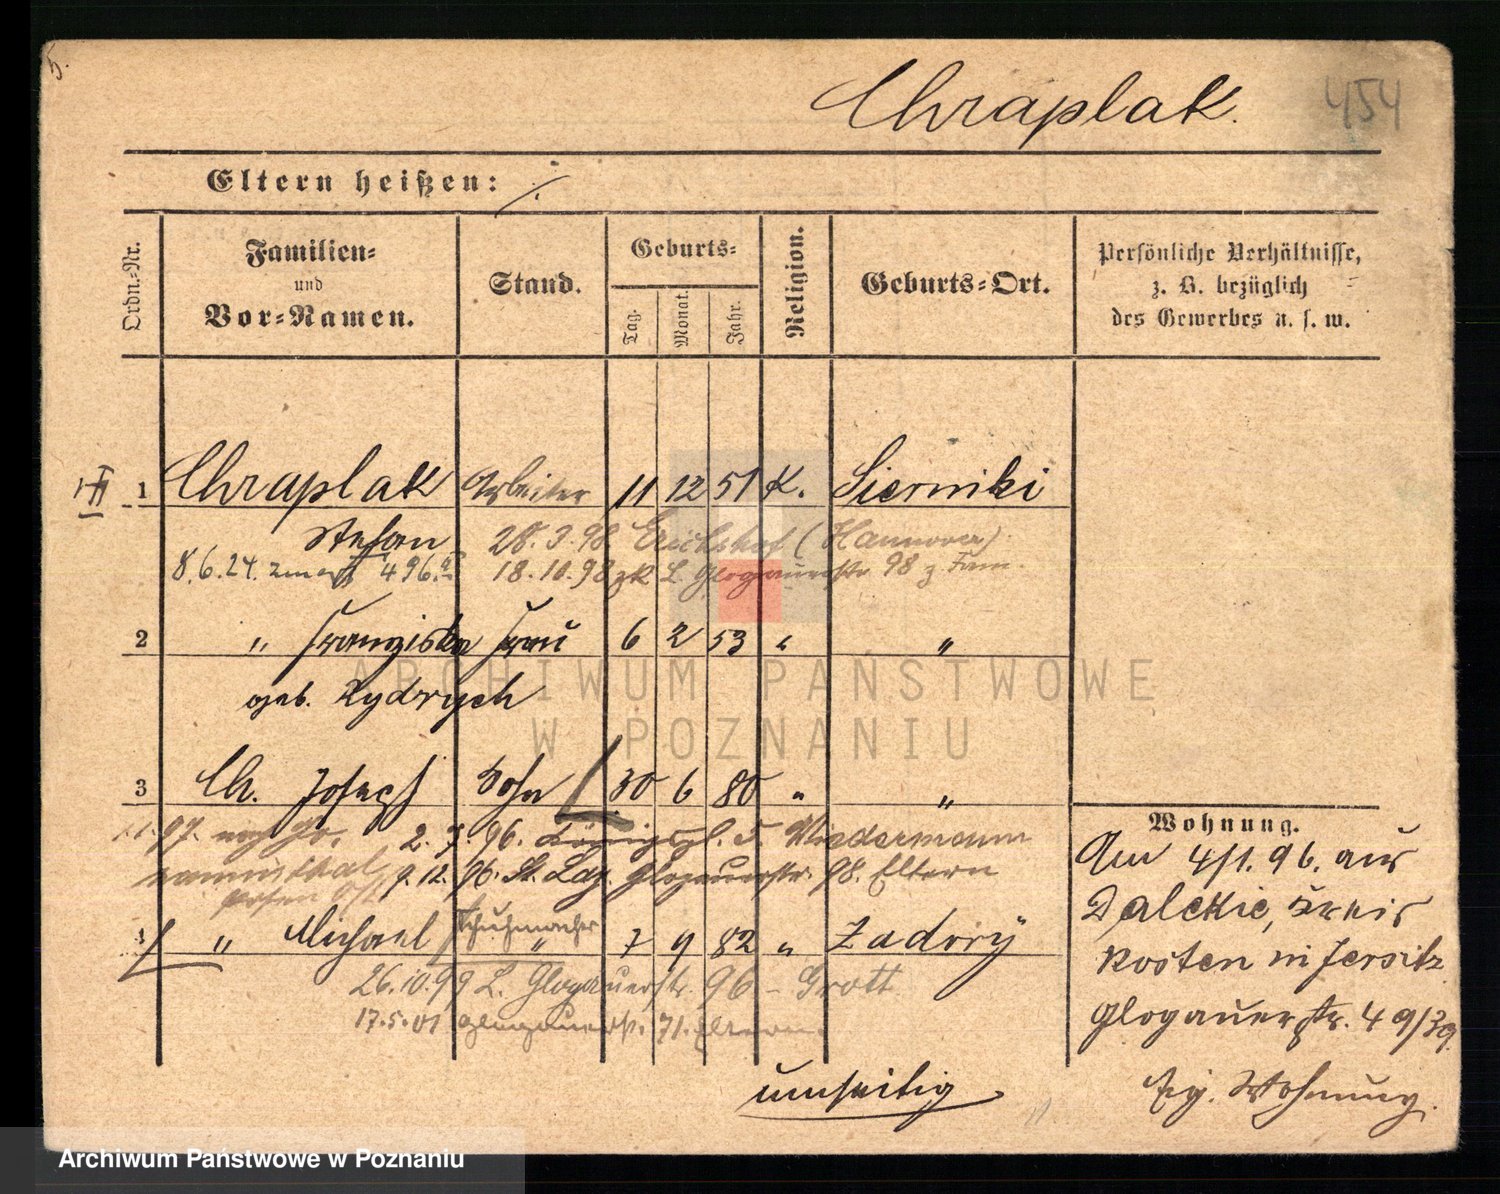 5.
Chraplak.
454
Eltern heißen: ⁒
Ordn.-Nr.
Familien-
und
Vor-Namen.
Stand.
Geburts-
Tag.
Monat.
Jahr.
Religion.
Geburts-Ort.
Persönliche Verhältnisse,
z. B. bezüglich
des Gewerbes u. s. w.
1 Chraplak Arbeiter 11 12 51 K. Sierniki
Stefan 28.3.98 Erichshof (Hannover)
8.6.24. zmarł 496. 18.10.98 zk L. Glogauerstr 98 z Fam.
2 " Franziska Frau 6 2 53 " "
geb. Rydrych
3 Ch. Joseph Sohn 30 6 80 " "
97. nach 2.7.96. Königspl. 5. Wiedermann
9.12.96. St. Laz. Glogauerstr. 98. Eltern
Posen Ost
4 " Michael Schuhmacher " 7 9 82 " Zadory
26.10.99 L. Glogauerstr. 96 - Grott
17.5.01 Glogauerstr. 71. Eltern
umseitig
Wohnung.
Am 4/1.96. aus
Dalekie, Kreis
Kosten in Jersitz
Glogauerstr. 49/39.
Eig. Wohnung.
ARCHIWUM PAŃSTWOWE
W POZNANIU
Archiwum Państwowe w Poznaniu